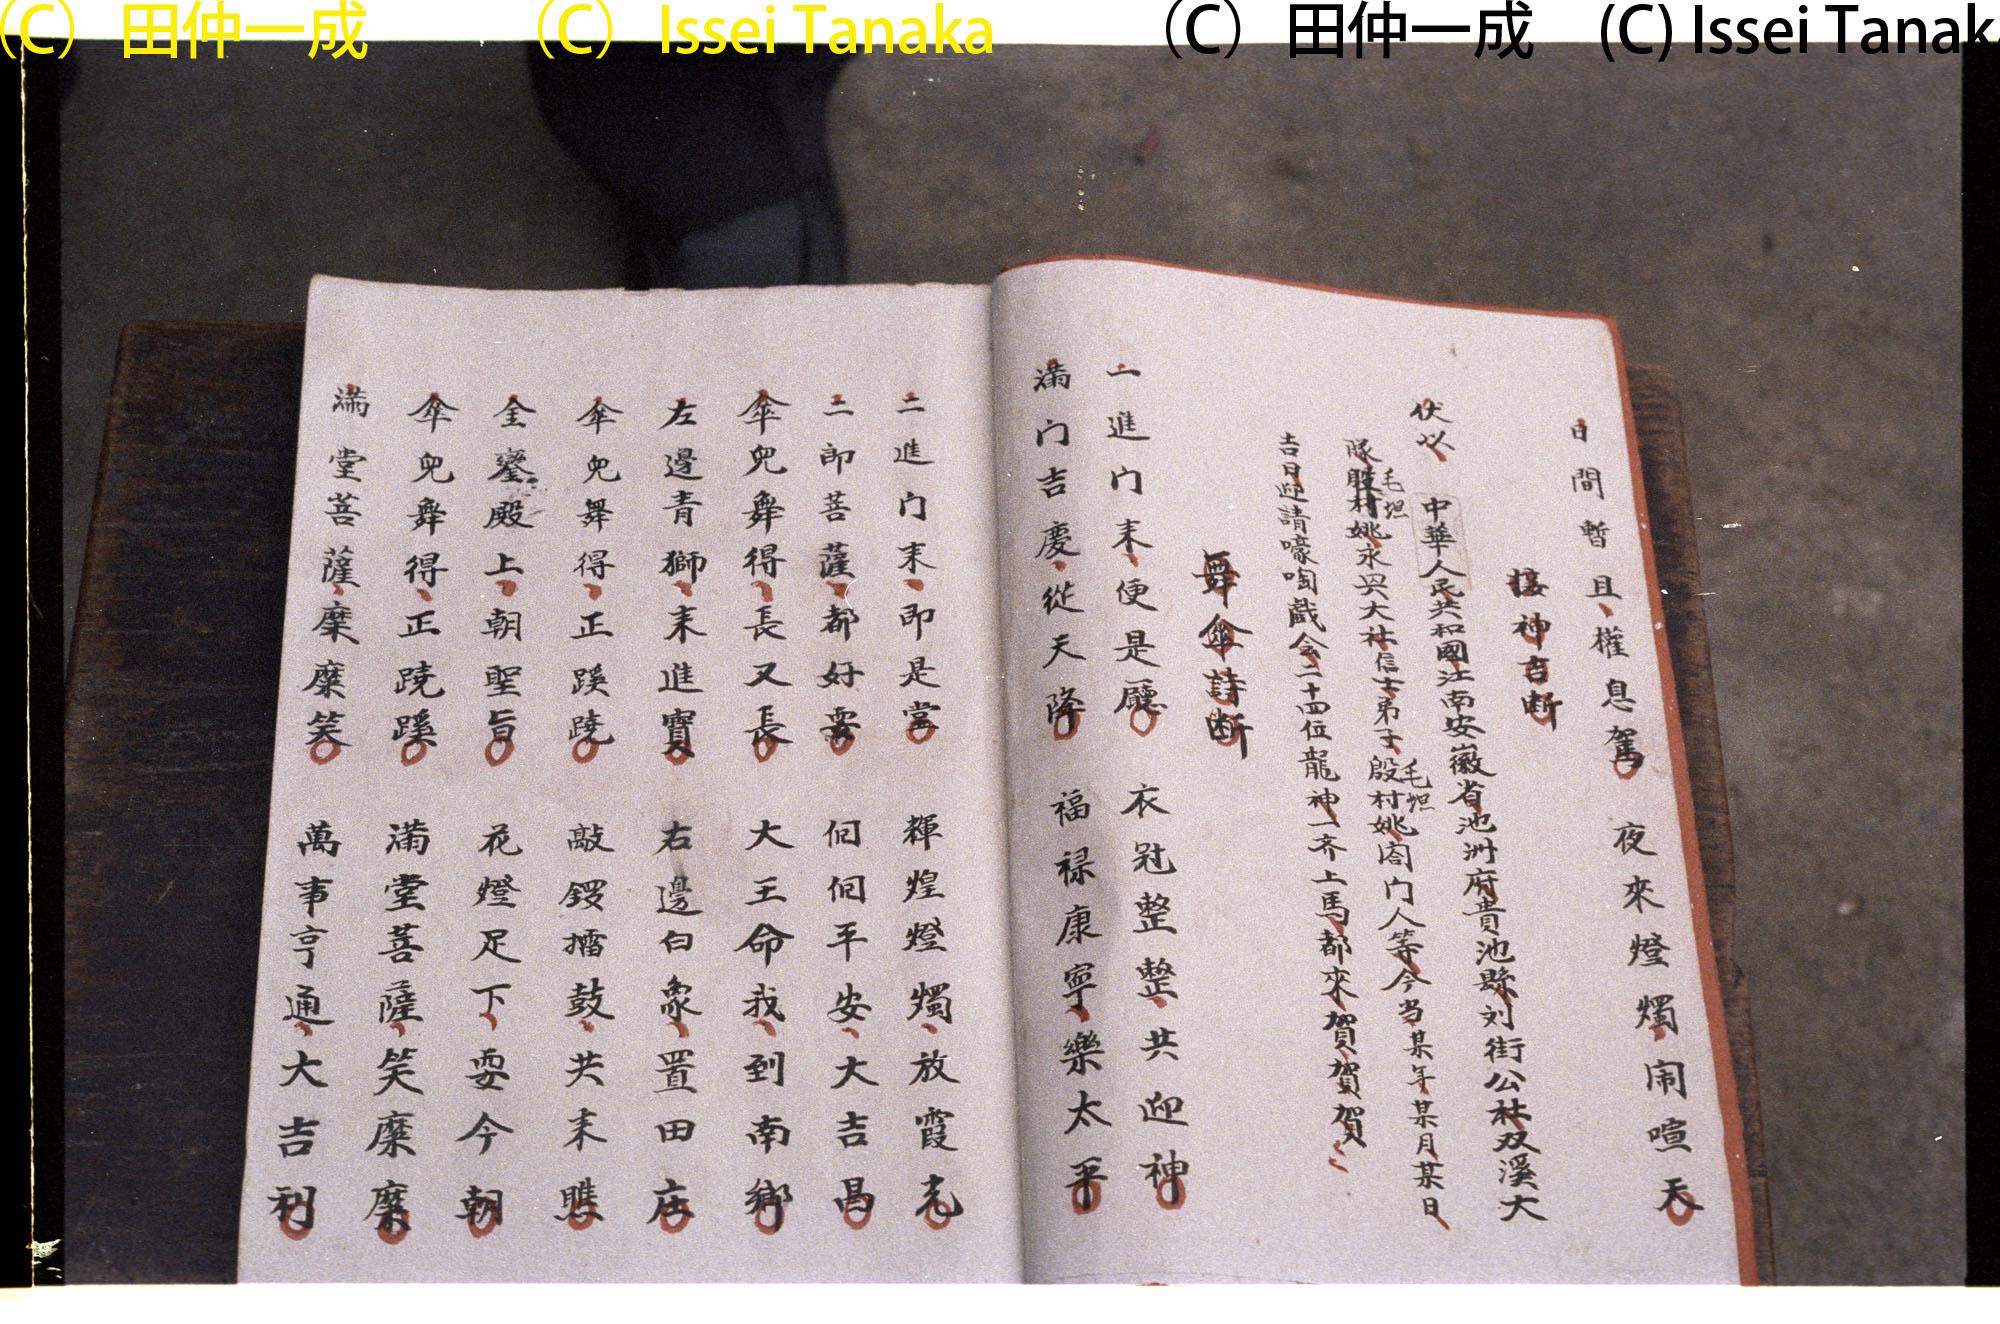 (C) 田仲一成 (C) Issei Tanaka (C) 田仲一成 (C) Issei Tanak
日間暫且、權息駕 夜來燈燭闹喧天
接神吉断
伏以 中華人民共和國江南安徽省池洲府貴池縣刘街公社双溪大
隊殷村姚永兴大社信士弟子、殷村姚 门人等今当某年某月某日
毛坦 毛坦
吉日迎請嚎啕戲会二十四位龍神一齐上馬都來賀賀賀
舞傘詩断
一進门来、便是廳 衣冠整整、共迎神
满门吉慶、從天降 福禄康寧、樂太平
二進门来、即是堂 輝煌燈燭、放霞光
二郎菩薩、都好耍 佪佪平安、大吉昌
傘兒舞得、長又長 大王命我、到南鄉
左邊青獅、来進寶 右邊白象、置田庄
傘兒舞得、正蹊蹺 敲鑼擂鼓、共来瞧
金鑾殿上、朝聖旨 花燈足下、耍今朝
傘兒舞得、正蹺蹊 满堂菩薩、笑糜糜
满堂菩薩、糜糜笑 萬事亨通、大吉利